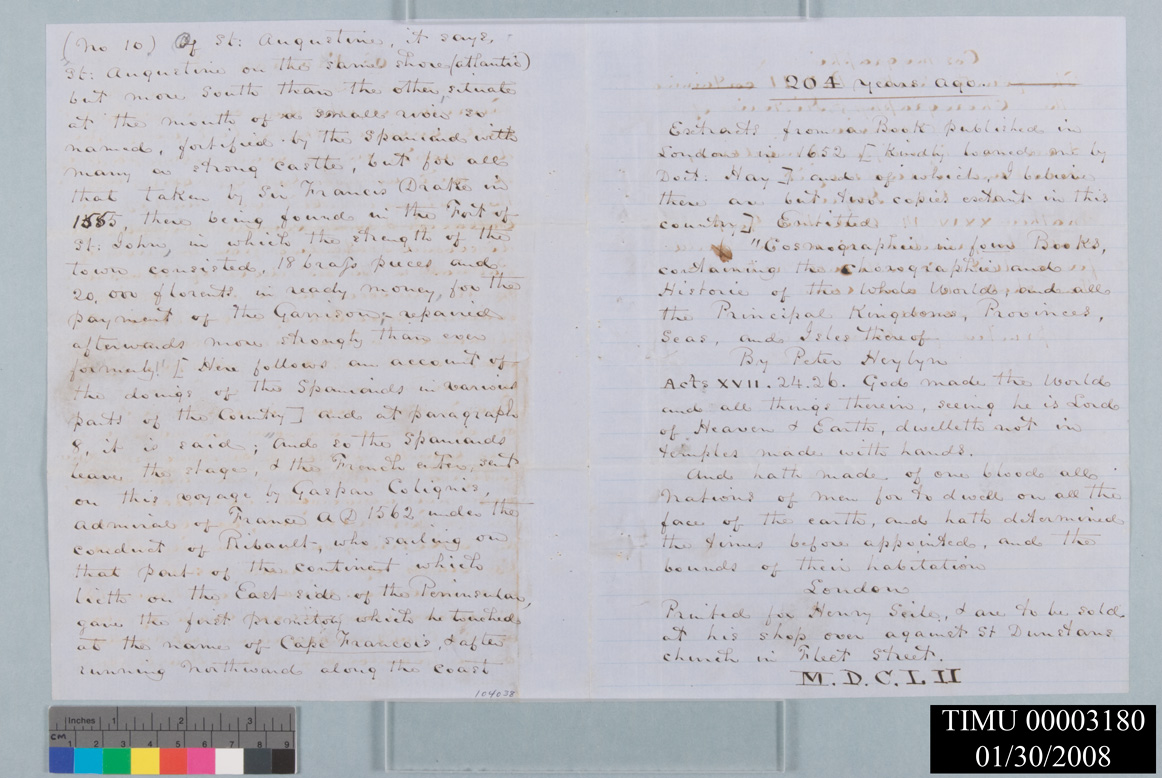 (No 10) Of St: Augustine, it says,
St: Augustine on the same shore (atlantic)
but more South than the other, situate
at the mouth of a small river so
named, fortified by the Spaniard with
many a strong castle, but for all
that taken by Sir Francis Drake in
1585, there being found in the Fort of
St: John, in which the strength of the
town consisted, 18 brass pieces and
20,000 florents in ready money, for the
payment of the Garrison, repaired
afterwards more strongly than ever
formerly" [Here follows an account of
the doings of the Spaniards in various
parts of the Country] and at paragraph
9, it is said, "And so the Spaniards
leave the stage, & the French enter, sent
on this voyage by Gaspar Colignis,
admiral of France AD 1562 under the
conduct of Ribault, who sailing on
that part of the continent which
lieth on the East side of the Peninsular,
gave the first promotory which he touched
at the name of Cape Francois, & after
running Northward along the coast
104038
204 years ago
Extracts from a Book published in
London in 1652 [Kindly loaned me by
Doct: Hay] and of which, I believe
there are but two copies extant in this
country] Entitled
"Cosmographie in four Books,
containing the Chorographie and
Historie of the whole World, and all
the Principal Kingdoms, Provinces,
Seas, and Isles thereof
By Peter Heylyn
Acts XVII. 24.26. God made the World
and all things therein, seeing he is Lord
of Heaven & Earth, dwelleth not in
temples made with hands.
And hath made of one blood all
Nations of men for to dwell on all the
face of the earth, and hath determined
the times before appointed, and the
bounds of their habitation
London
Printed for Henry Seile, & are to be sold
at his shop over against St Dunstans
church in Fleet Street.
M.D.C.L II
Inches 1 2 3
CM 1 2 3 4 5 6 7 8 9
TIMU 00003180
01/30/2008